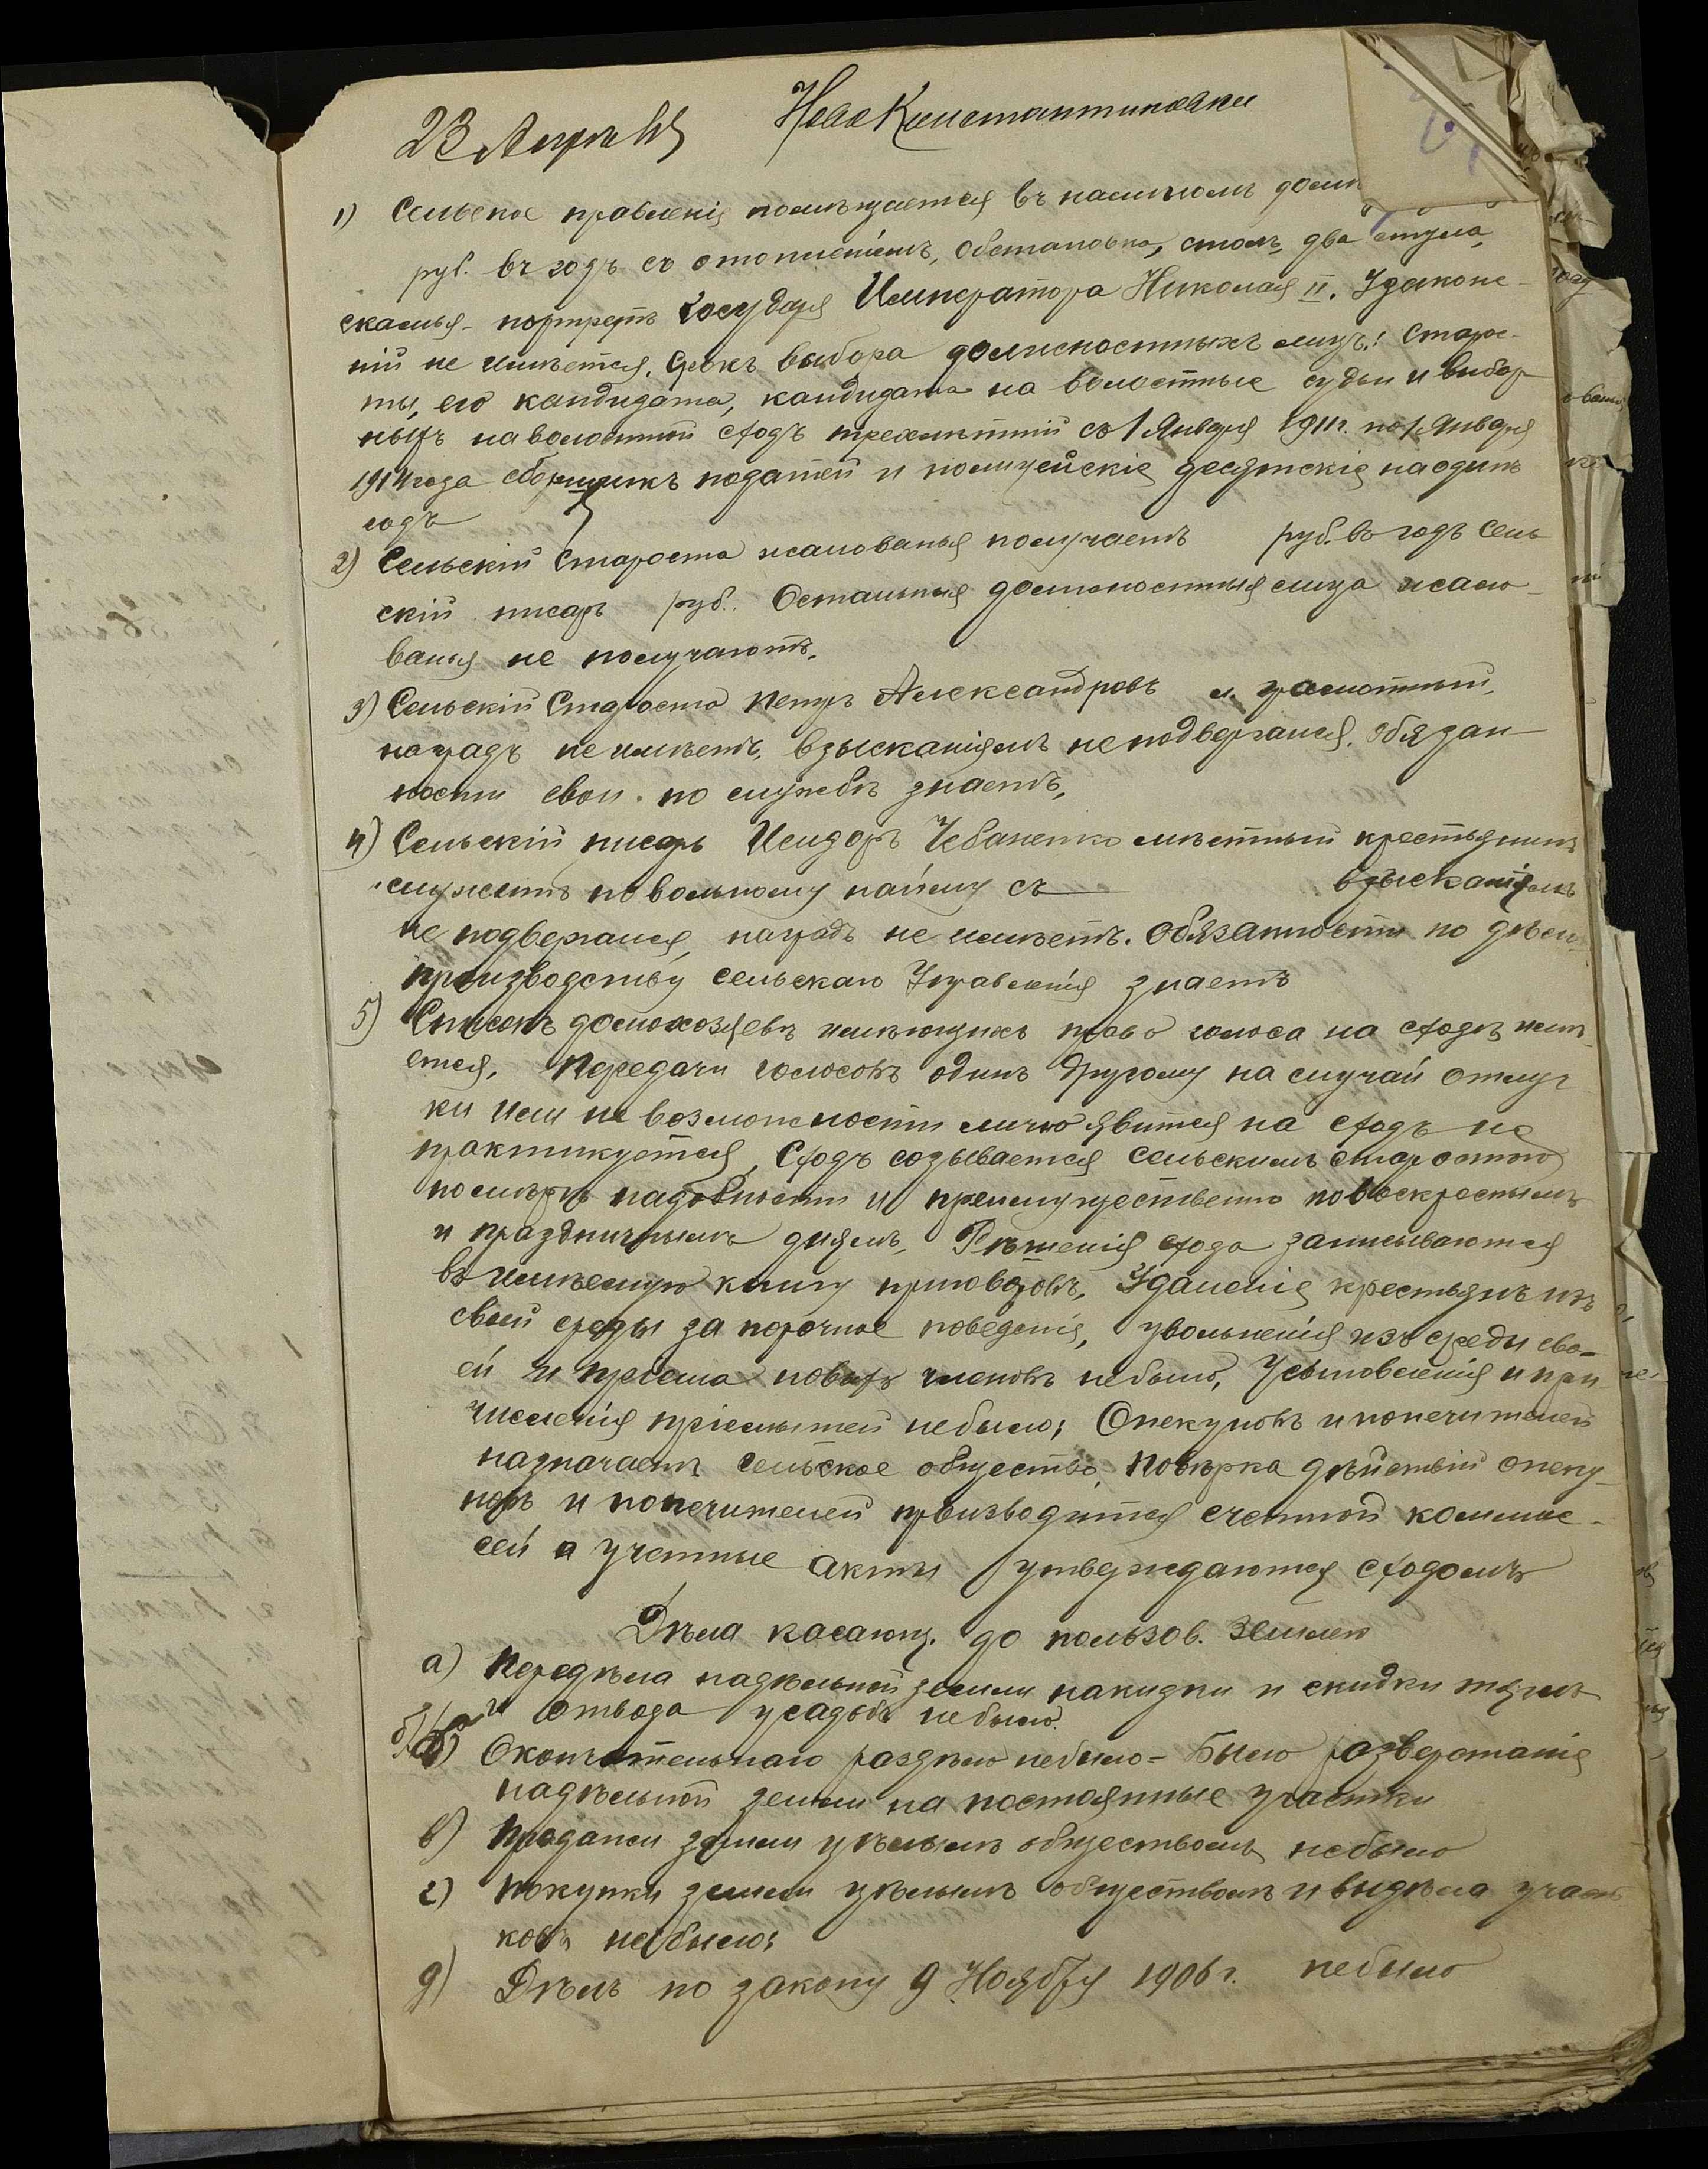 23 Апрель НовоКонстантиновки
1) Сельское правленія помѣщается въ наемномъ домѣ
руб. въ годъ съ отопленіемъ, обстановка, столъ, два стула,
скамья - портретъ Государя Императора Николая II. Узаконе-
ній не имѣется. Срокъ выбора должностныхъ лицъ: старос-
ты, его кандидата, кандидата на волостные судьи и выбор
ныхъ на волостной сходъ трехлѣтній съ 1 Января 1911г. по 1 Января
1914 года сборщикъ податей и полицейскіе десятскіе на одинъ
годъ
2) Сельскій Староста жалованья получаетъ руб. въ годъ Сель
скій писарь руб. Остальныя должностныя лица жало-
ванья не получаютъ.
3) Сельскій Староста Петръ Александровъ м. грамотный,
наградъ не имѣетъ, взысканіямъ не подвергался, обязан-
ности свои по службѣ знаетъ,
4) Сельскій писарь Исидоръ Чебаненко мѣстный крестьянинъ
служитъ по вольному найму съ взысканіямъ
не подвергался, наградъ не имѣетъ. Обязанности по дѣло
производству сельскаго Управленія знаетъ
5) Списокъ домохозяевъ имѣющихъ право голоса на сходѣ имѣ-
ется. Передачи голосовъ одинъ другому на случай отлуч
ки или не возможности лично явится на сходъ не
практикуется, Сходъ созывается сельскимъ старостою
по мѣрѣ надобности и преимущественно по воскреснымъ
и праздничнымъ днямъ, Рѣшенія схода записываются
въ имѣемую книгу приговоровъ, Удаленія крестьянъ изъ
своей среды за порочное поведенія, увольненія изъ среды сво-
ей и пріема новыхъ членовъ небыло, Усыновленія и при
численія пріемышей небыло; Опекуновъ и попечителей
назначаетъ сельское общество, повѣрка дѣйствій опеку-
новъ и попечителей производится счетной коммис-
сей а учетные акты утверждаются сходомъ
Дѣла касающ. до пользов. землею
а) Передѣла надѣльной земли накидки и скидки тяголъ
и отвода усадьбъ небыло.
б) Окончательнаго раздѣла небыло - Было разверстанія
надѣльной земли на постоянные участки
в) Продажи земли цѣлымъ обществомъ небыло
г) покупки земли цѣлымъ обществомъ и выдѣла участ
ковъ небыло;
д) Дѣлъ по закону 9 Ноября 1906 г. небыло